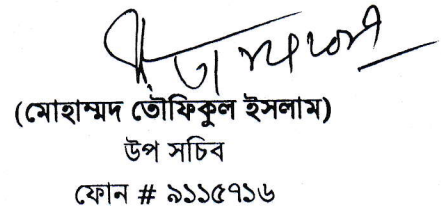 (মোহাম্মদ তৌফিকুল ইসলাম)
উপ সচিব
ফোন # ৯১১৫৭১৬